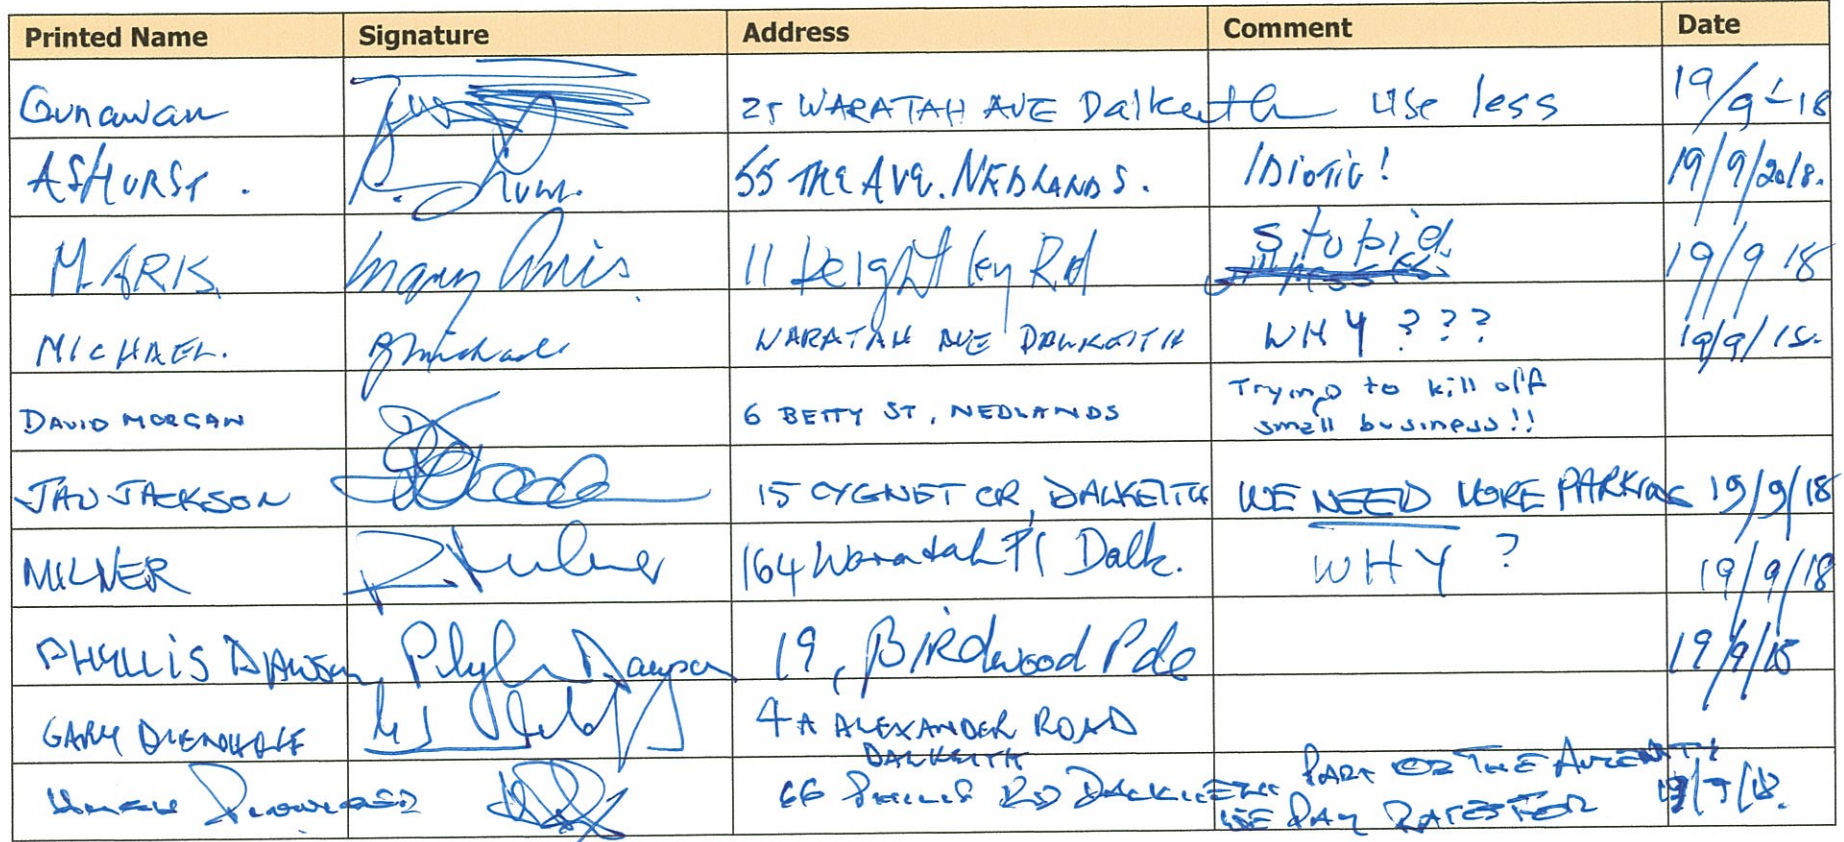 Printed Name Signature Address Comment Date
Gunawan 25 WARATAH AVE Dalkeith Use less 19/9-18
ASHURST. 55 THE AVE. NEDLANDS. IDIOTIC! 19/9/2018.
MARIS 11 Keightley Rd Stupid 19/9 18
MICHAEL. WARATAH AVE DALKEITH WHY ??? 19/9/18.
DAVID MORGAN 6 BETTY ST, NEDLANDS Trying to kill off
small business!!
JAN JACKSON 15 CYGNET CR, DALKEITH WE NEED MORE PARKING 19/9/18
MILNER R. Milner 164 Waratah Pl Dalk. WHY ? 19/9/18
PHYLLIS DAWSON Phyllis Dawson 19, Birdwood Pde 19/9/18
GARY 4A ALEXANDER ROAD
DALKEITH
66 PHILLIP RD DALKEITH PART OF THE AMENITY
WE PAY RATES FOR 19/9/18.